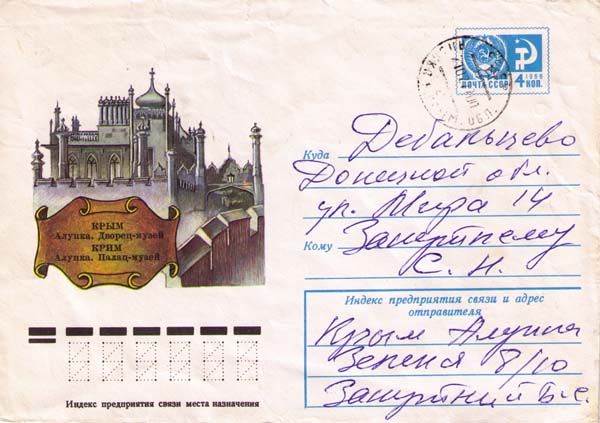 ПОЧТА СССР
1966
4 КОП.
КРЫМ
Алупка. Дворец-музей
КРИМ
Алупка. Палац-музей
Куда Дебальцево
Донецкой обл.
ул. Мира 14
Кому
С. Н.
Индекс предприятия связи и адрес
отправителя
Крым Алупка
8/10
Индекс предприятия связи места назначения